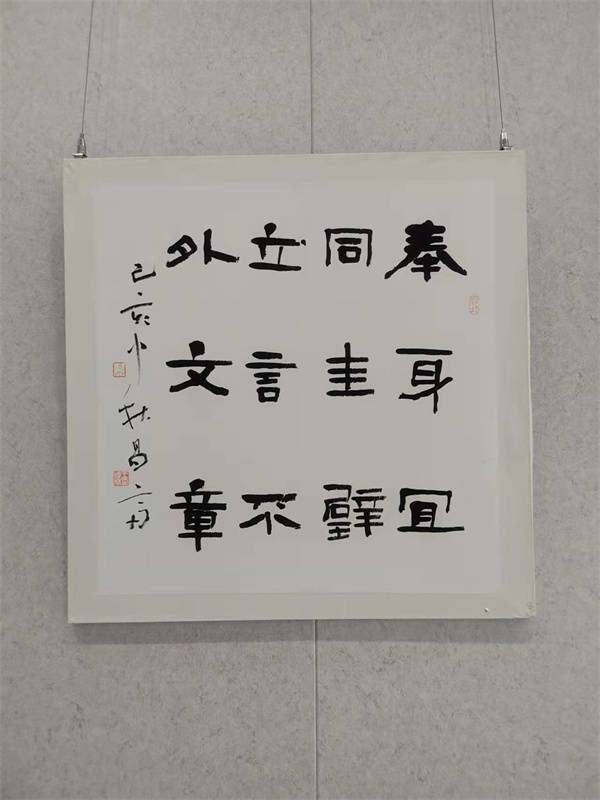 奉身宜
同圭璧
立言不
外文章
己亥小秋昌